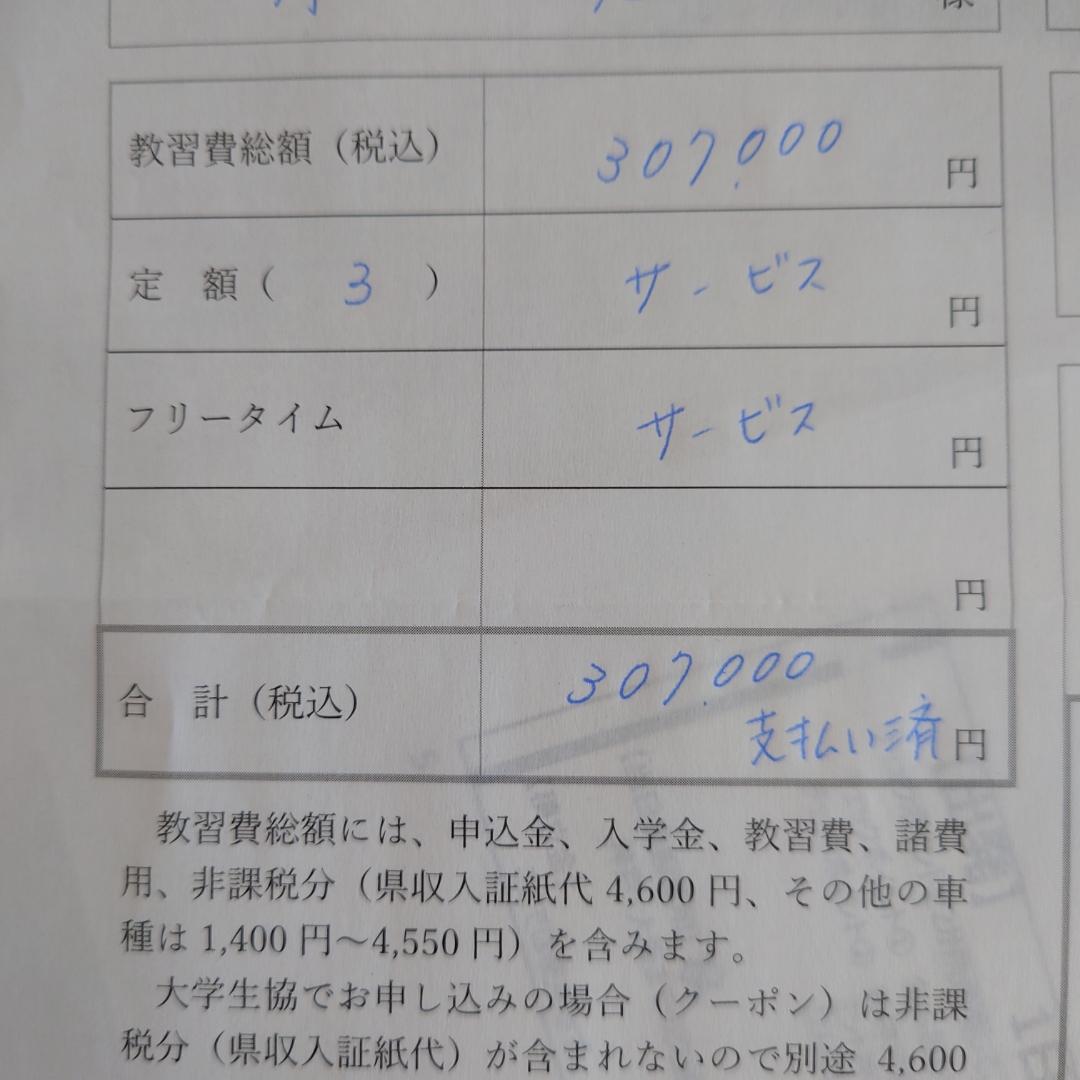 様
教習費総額（税込） 307.000 円
定　額（　3　） サービス 円
フリータイム サービス 円
円
合　計（税込） 307.000
支払い済 円
教習費総額には、申込金、入学金、教習費、諸費
用、非課税分（県収入証紙代 4,600 円、その他の車
種は 1,400 円～4,550 円）を含みます。
大学生協でお申し込みの場合（クーポン）は非課
税分（県収入証紙代）が含まれないので別途 4,600